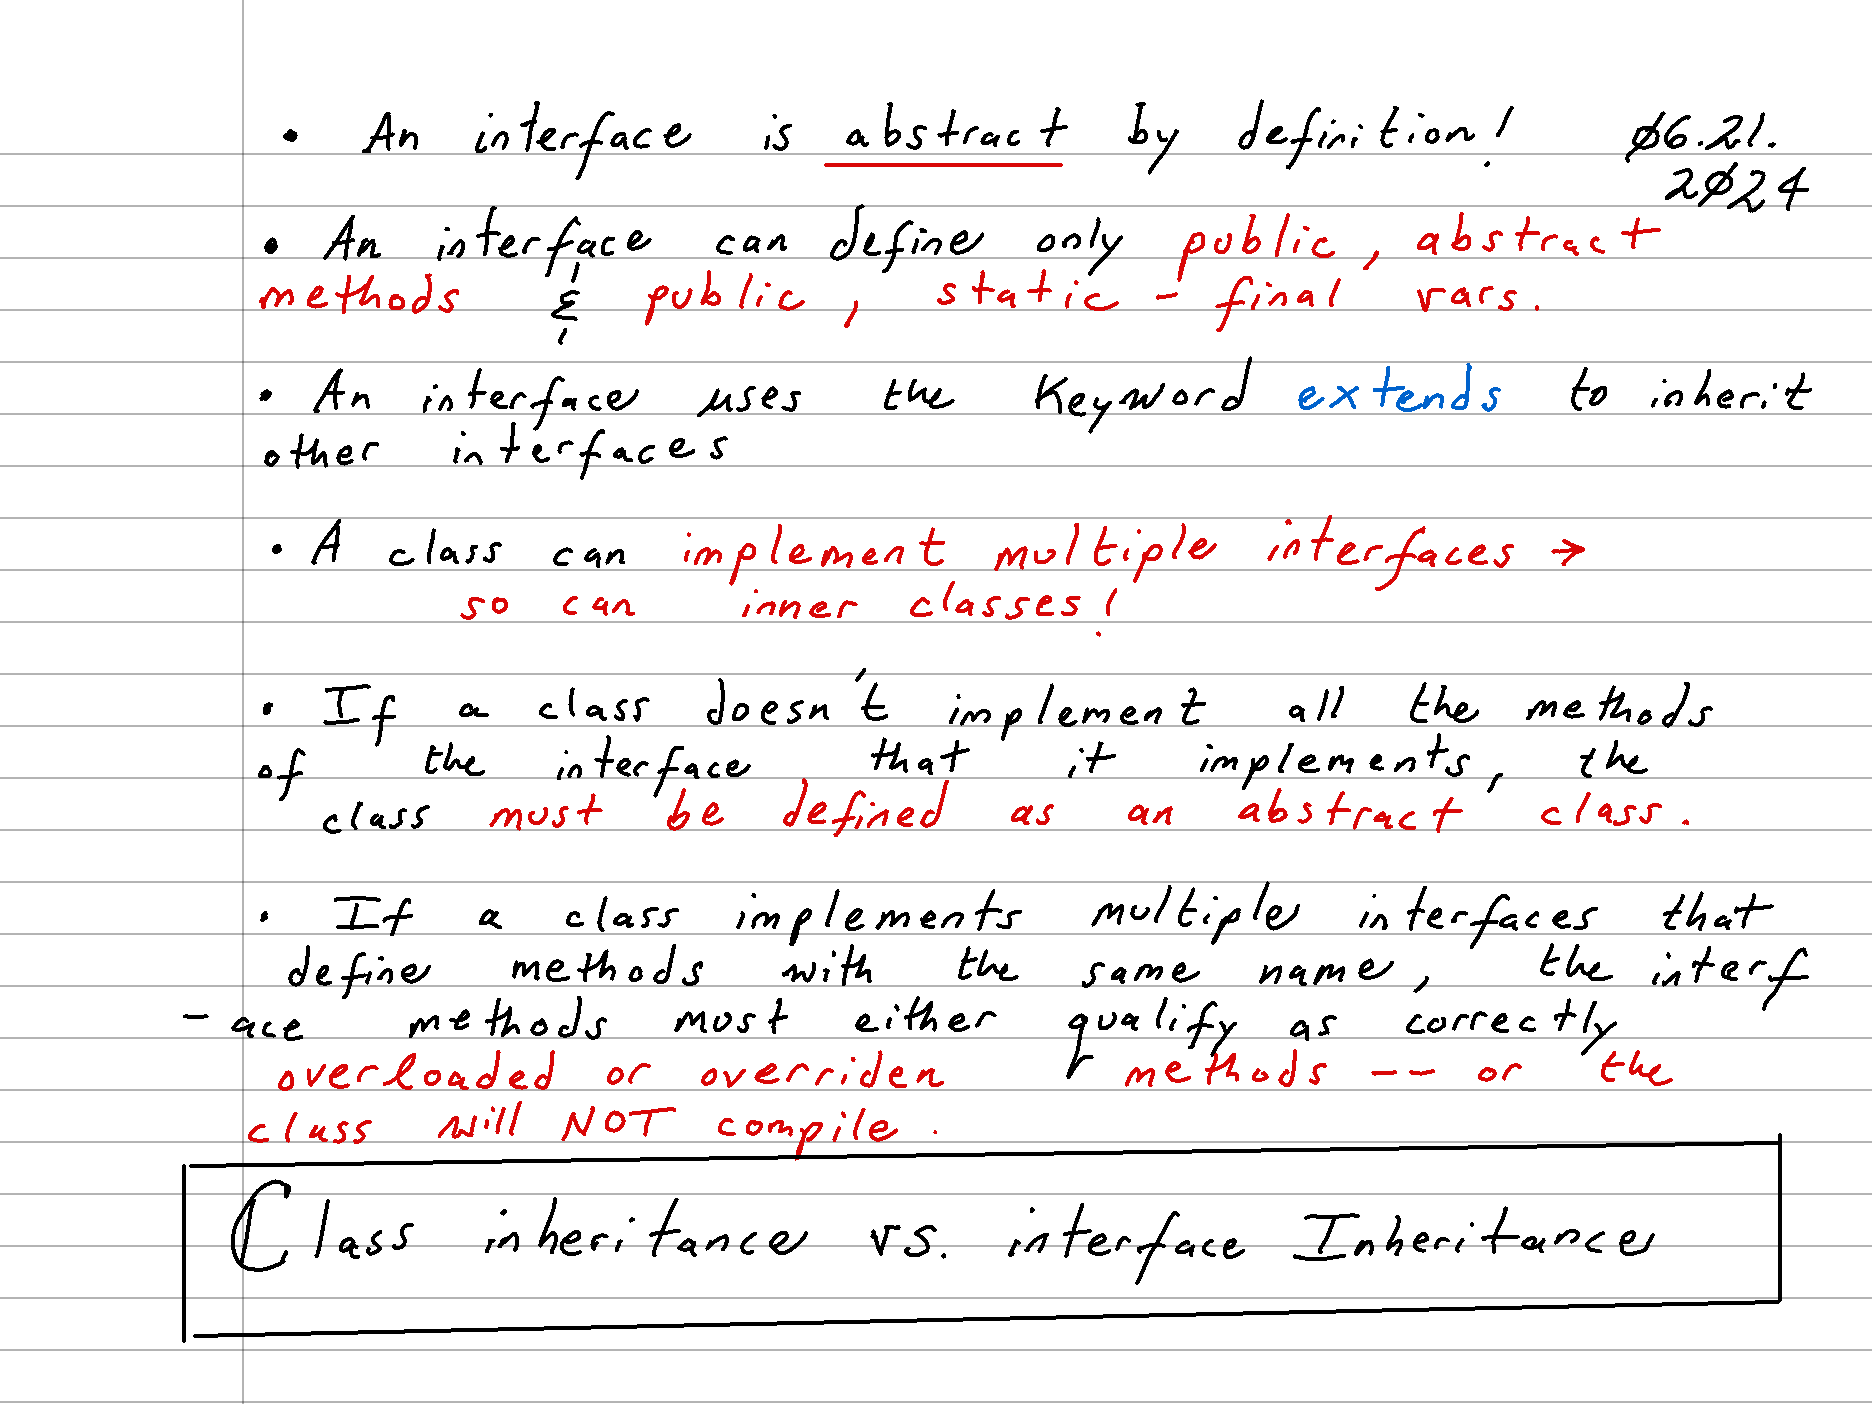 • An interface is abstract by definition! 06.21.
2024
• An interface can define only public, abstract
methods & public, static-final vars.
• An interface uses the Keyword extends to inherit
other interfaces
• A class can implement multiple interfaces →
so can inner classes!
• If a class doesn't implement all the methods
of the interface, that it implements, the
class must be defined as an abstract class.
• If a class implements multiple interfaces that
define methods with the same name, the interf
- ace methods must either qualify as correctly
overloaded or overriden methods -- or the
class will NOT compile.
Class inheritance vs. interface Inheritance